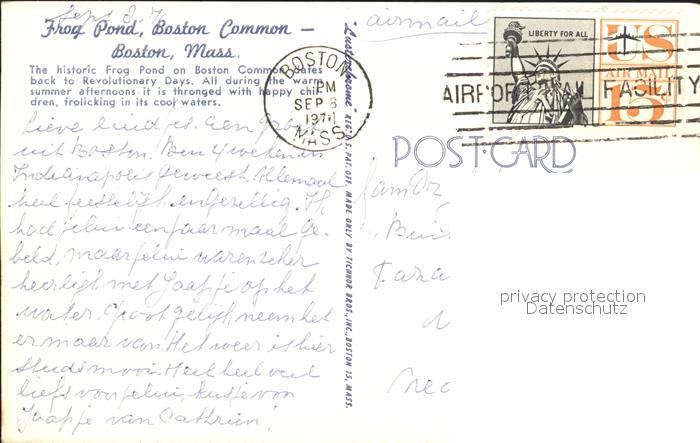 Sept 8, 7
Frog Pond, Boston Common —
Boston, Mass.
The historic Frog Pond on Boston Common dates
back to Revolutionary Days. All during the warm
summer afternoons it is thronged with happy chil-
dren, frolicking in its cool waters.
Lieve kindjes. Een groet
uit Boston. Ben 4 weken in
Indianapolis geweest. Allemaal
heel feestelijk en gezellig. Ik
had jelui een paar maal ge-
beld, maar jelui waren zeker
heerlijk met Jaapje op het
water. Groot gelijk, neem het
er maar van. Het weer is hier
steeds mooi. Heel heel veel
liefs voor jelui, kusje von
Jaapje van Cathrien!
"Lusterchrome" REG. U.S. PAT. OFF. MADE ONLY BY TICHNOR BROS., INC., BOSTON 15, MASS.
airmail
BOSTON
PM
SEP 8
1971
MASS
LIBERTY FOR ALL
US
AIR MAIL
15c
AIRPORT MAIL FACILITY
POST-CARD
fam
privacy protection
Datenschutz